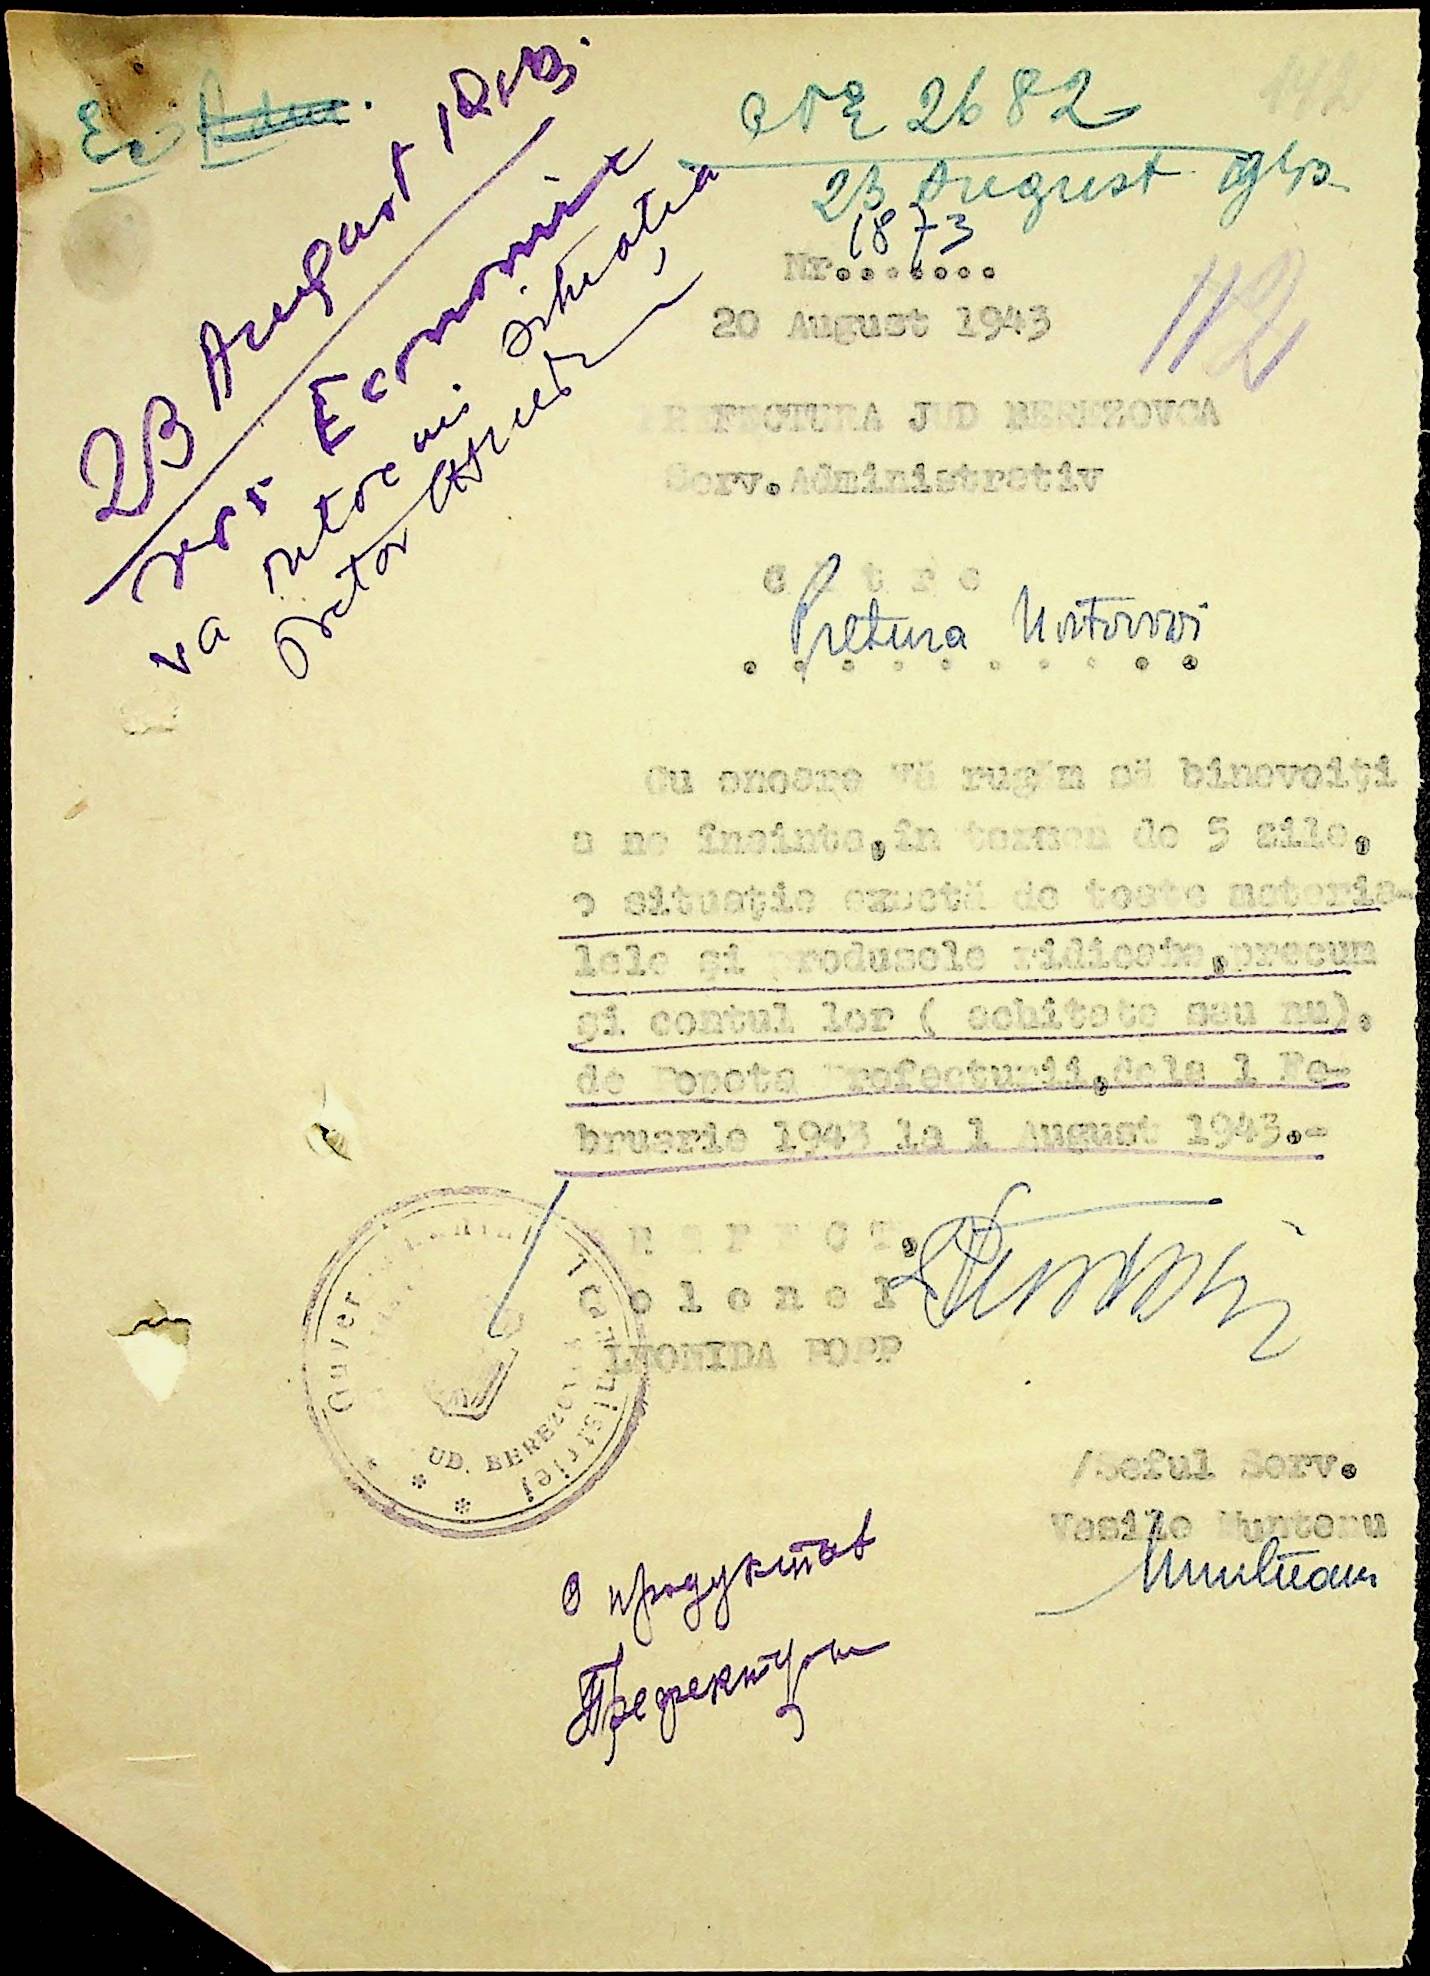 Ec
№ 2682
23 August 943
112
Nr.1873......
20 August 1943
112
PREFECTURA JUD BEREZOVCA
Serv.Administrativ
23 August 1943.
serv Economic
va intocmi situația
Pretor
C t r e
Pretura
Cu onoare Vă rugăm să binevoiți
a ne înainta,în termen de 5 zile,
o situație exactă de toate materia-
lele și produsele ridicate,precum
și contul lor ( achitate sau nu),
de Popota Prefecturii,dela 1 Fe-
bruarie 1943 la 1 August 1943.-
P R E F E C T,
C o l o n e l
LEONIDA POPP
Guvernământul Transnistriei
JUD. BEREZOVCA
/Seful Serv.
Vasile Muntenu
Munteanu
О продуктах
Префектуры